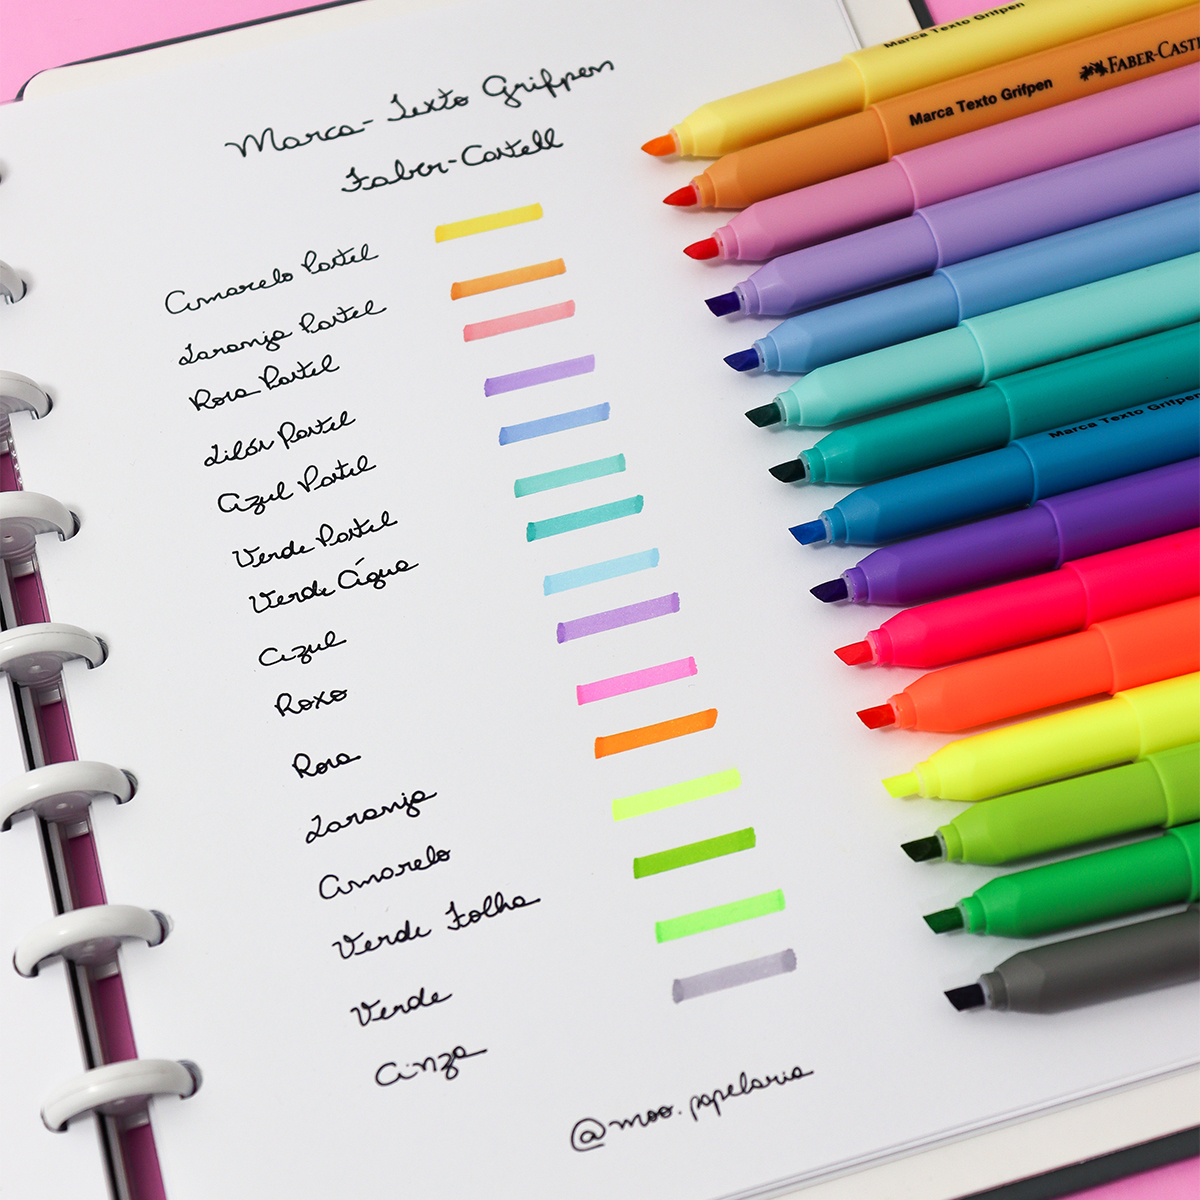 Marca-Texto Grifpen
Faber-Castell
Amarelo Pastel
Laranja Pastel
Rosa Pastel
Lilás Pastel
Azul Pastel
Verde Pastel
Verde Água
Azul
Roxo
Rosa
Laranja
Amarelo
Verde Folha
Verde
Cinza
@moo.papelaria
Marca Texto Grifpen
Marca Texto Grifpen FABER-CASTEL
Marca Texto Grifpen